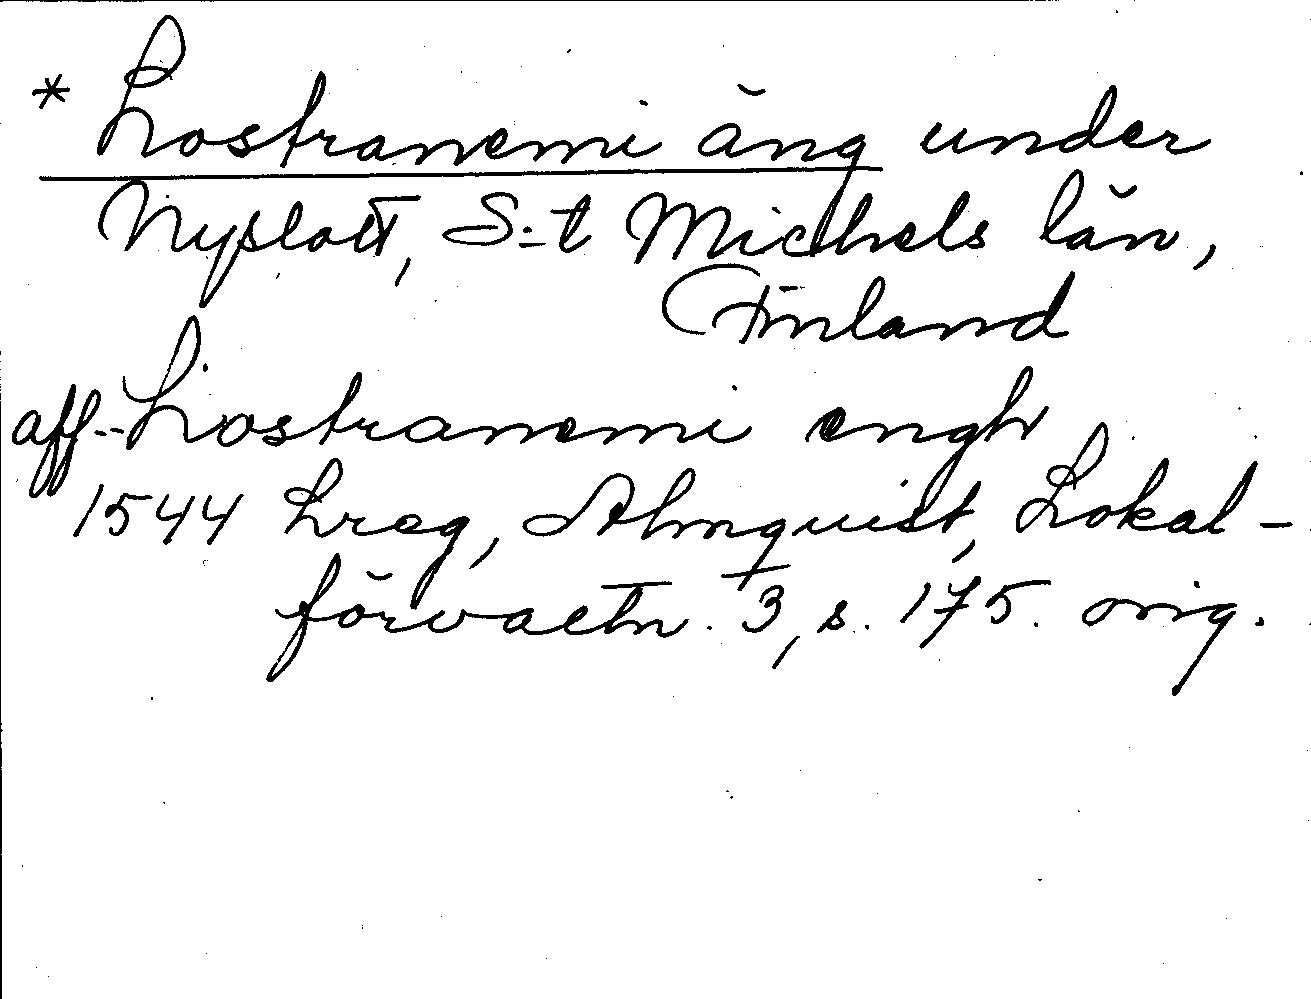 * Lostranemi äng under
Nyslott, S:t Michels län,
Finland
aff--Lostranemi engh
1544 Lreg, Almquist, Lokal-
förvaltn. 3, s. 175. orig.